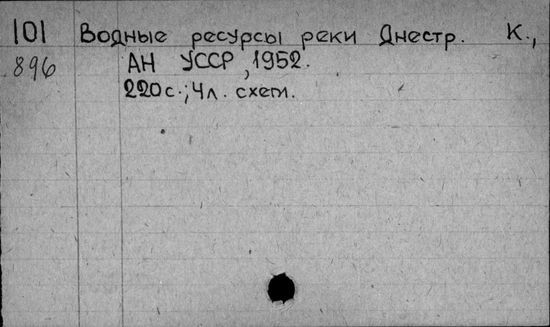 101 Водные ресурсы реки Днестр. К.,
896 АН УССР, 1952.
220 с.; 4 л. схем.